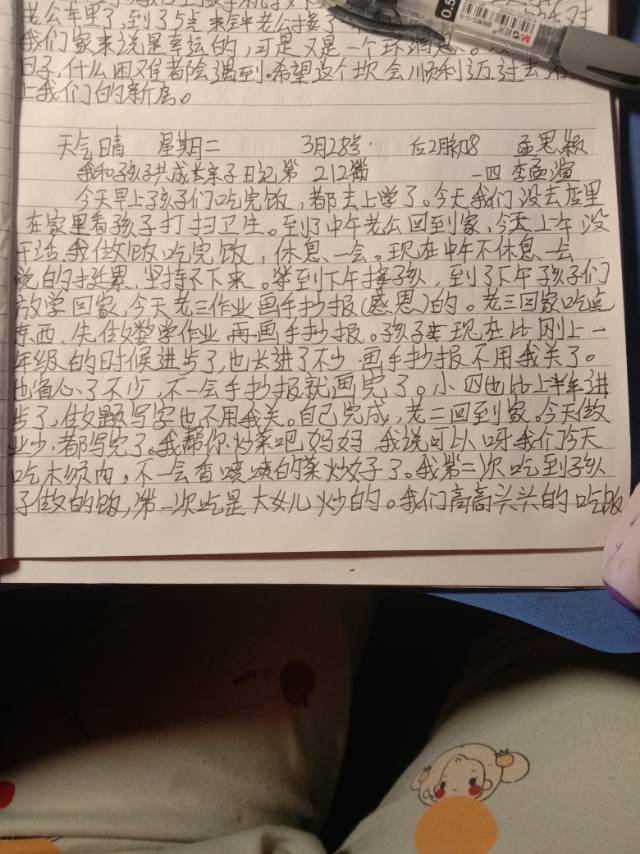 老公车里了,到了5点
我们家来说是幸运的,可是又是一个坏消息。
日子,什么困难都会遇到。希望这个坎会顺利迈过去,
上我们的新房。
0.5
M&G
天气晴 星期二 3月28号 后2月初8 孟思颖
我和孩子共成长亲子日记第212篇 一四 李孟演
今天早上孩子们吃完饭,都去上学了。今天我们没去店里
在家里看孩子打扫卫生。到了中午老公回到家,今天上午没
干活,我做饭吃完饭,休息一会。现在中午不休息一会
说的挺累,坚持不下来。等到下午接孩子,到了下午孩子们
放学回家,今天老三作业画手抄报(感恩)的。老三回家吃点
东西,先做数学作业,再画手抄报。孩子现在比刚上一
年级的时候进步了,也长进了不少,画手抄报不用我关了。
也省心了不少,不一会手抄报就画完了。小四也比上半年进
步了,做题写字也不用我关。自己完成,老二回到家。今天做
业少,都写完了。我帮你炒菜吧妈妈,我说可以呀我们今天
吃木须肉,不一会香喷喷的菜炒好了。我第二次吃到孩
子做的饭,第一次吃是大女儿炒的。我们高高兴兴的吃饭